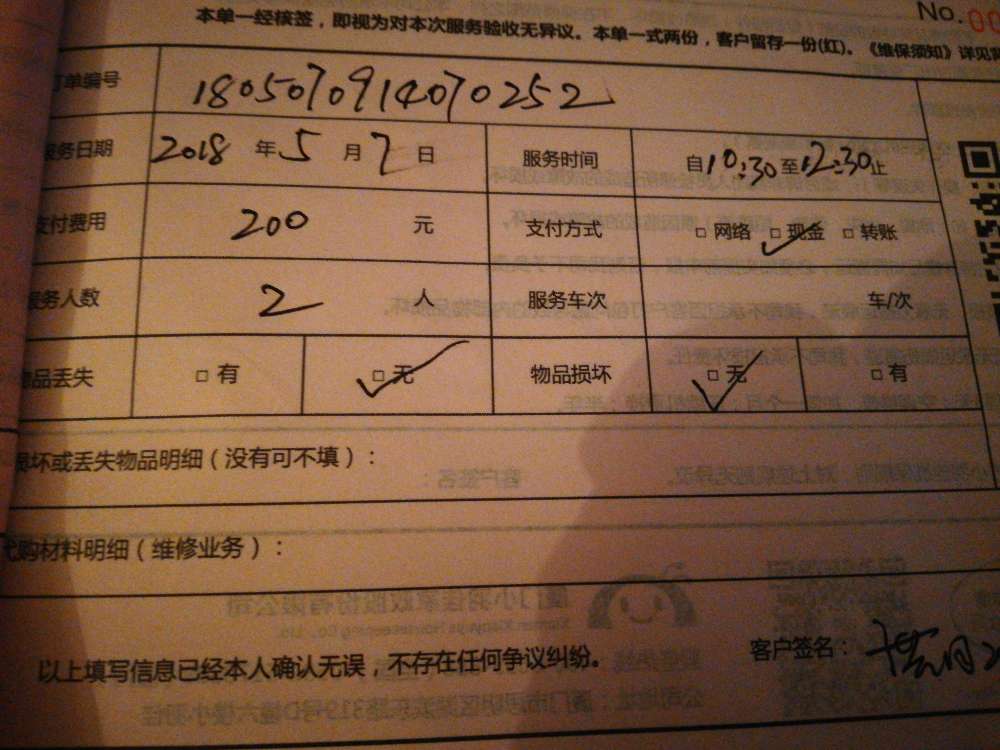 No.
本单一经核签，即视为对本次服务验收无异议。本单一式两份，客户留存一份(红)。《维保须知》详见背
订单编号 1805070914070252
服务日期 2018 年 5 月 7 日 服务时间 自10:30至12:30止
支付费用 200 元 支付方式 □ 网络 □ 现金 □ 转账
服务人数 2 人 服务车次 车/次
物品丢失 □ 有 □ 无 物品损坏 □ 无 □ 有
损坏或丢失物品明细（没有可不填）：
代购材料明细（维修业务）：
以上填写信息已经本人确认无误，不存在任何争议纠纷。 客户签名：